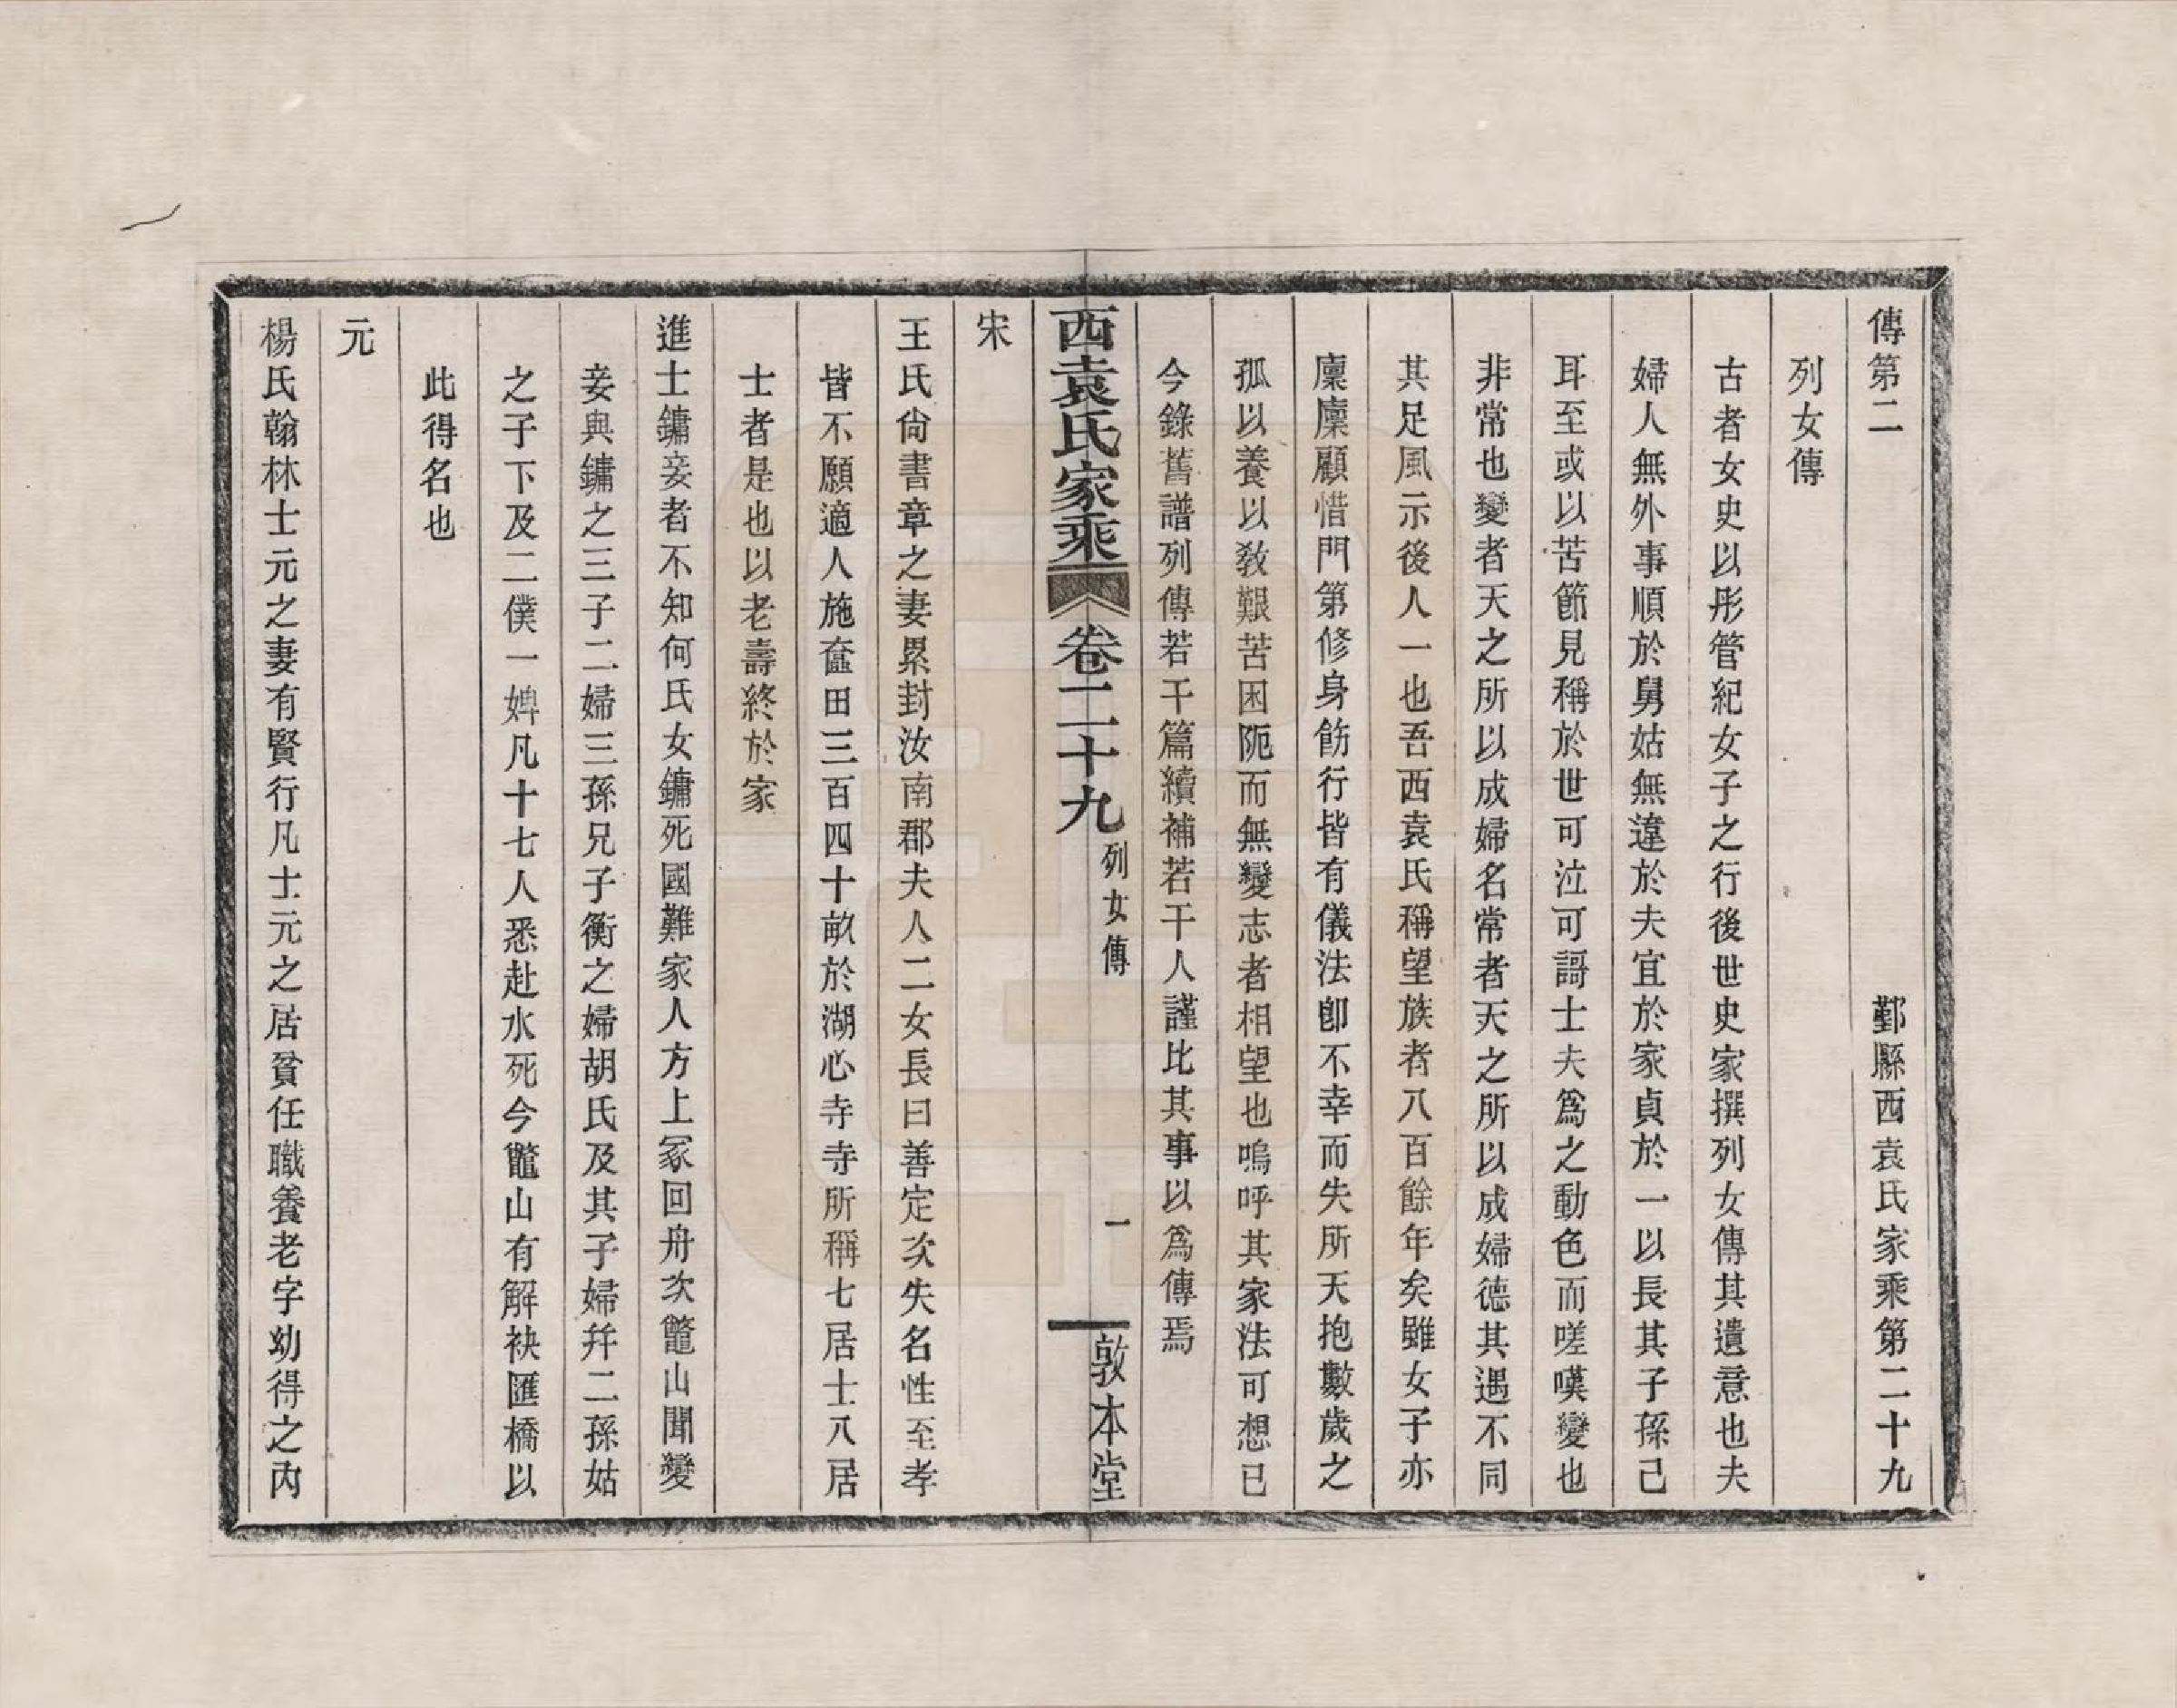 傳第二　鄞縣西袁氏家乘第二十九
列女傳
古者女史以彤管紀女子之行後世史家撰列女傳其遺意也夫
婦人無外事順於舅姑無違於夫宜於家貞於一以長其子孫己
耳至或以苦節見稱於世可泣可謌士夫爲之動色而嗟嘆變也
非常也變者天之所以成婦名常者天之所以成婦德其遇不同
其足風示後人一也吾西袁氏稱望族者八百餘年矣雖女子亦
廩廩顧惜門第修身飭行皆有儀法卽不幸而失所天抱數歲之
孤以養以教艱苦困阨而無變志者相望也嗚呼其家法可想已
今錄舊譜列傳若干篇續補若干人謹比其事以爲傳焉
西袁氏家乘　卷二十九　列女傳　一　敦本堂
宋
王氏尙書章之妻累封汝南郡夫人二女長曰善定次失名性至孝
皆不願適人施奩田三百四十畝於湖心寺寺所稱七居士八居
士者是也以老壽終於家
進士鏞妾者不知何氏女鏞死國難家人方上冢回舟次鼈山聞變
妾與鏞之三子二婦三孫兄子衡之婦胡氏及其子婦幷二孫姑
之子下及二僕一婢凡十七人悉赴水死今鼈山有解袂匯橋以
此得名也
元
楊氏翰林士元之妻有賢行凡士元之居貧任職養老字幼得之內